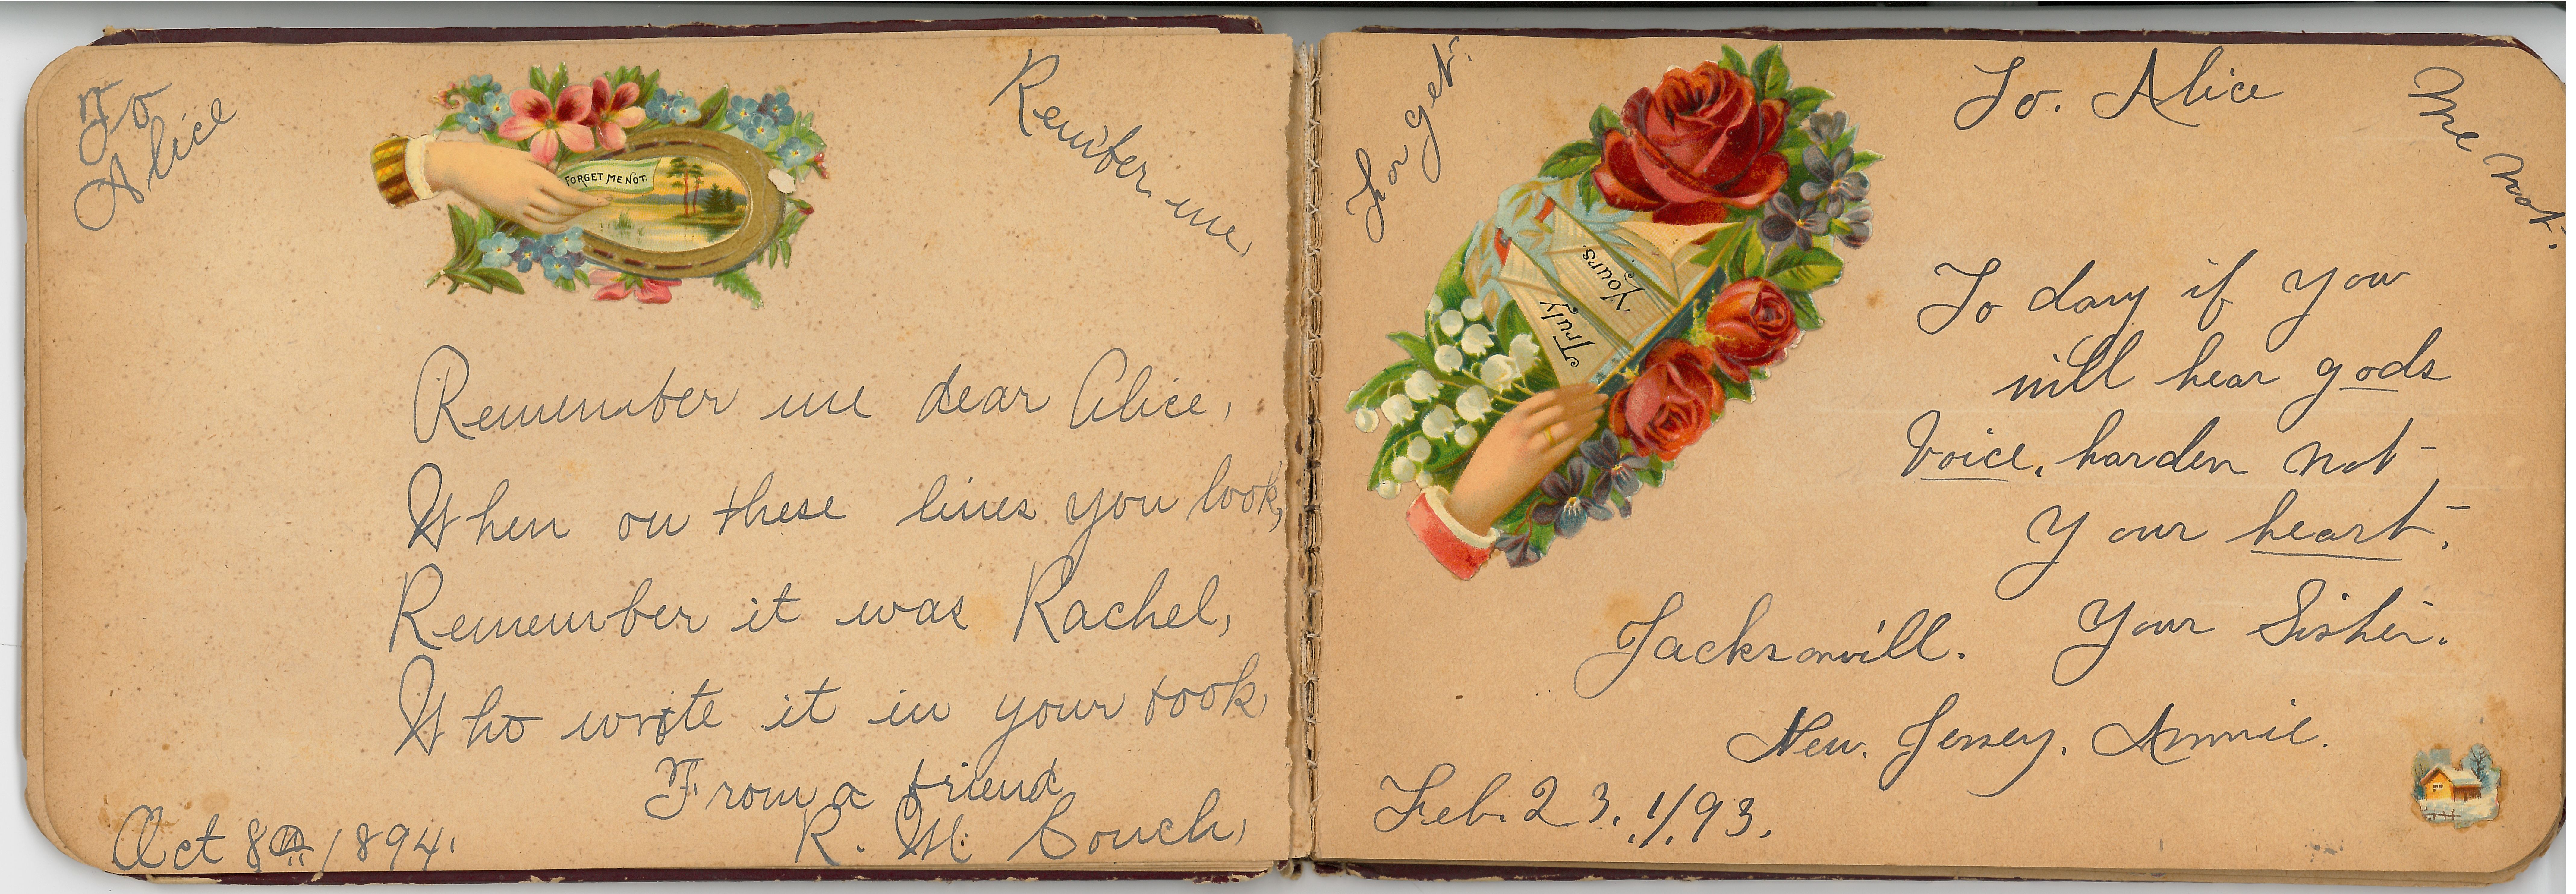 To
Alice
FORGET ME NOT.
Rember me
Remember me dear Alice,
When on these lines you look,
Remember it was Rachel,
Who wrote it in your book,
From a friend
R. M. Couch,
Oct 8th 1894.
For get.
To. Alice
Me Not.
Truly
Yours.
To day if you
will hear gods
Voice, harden not
Your heart.
Your Sister.
Jacksonvill.
New. Jersey. Annie.
Feb. 23. 1/93.